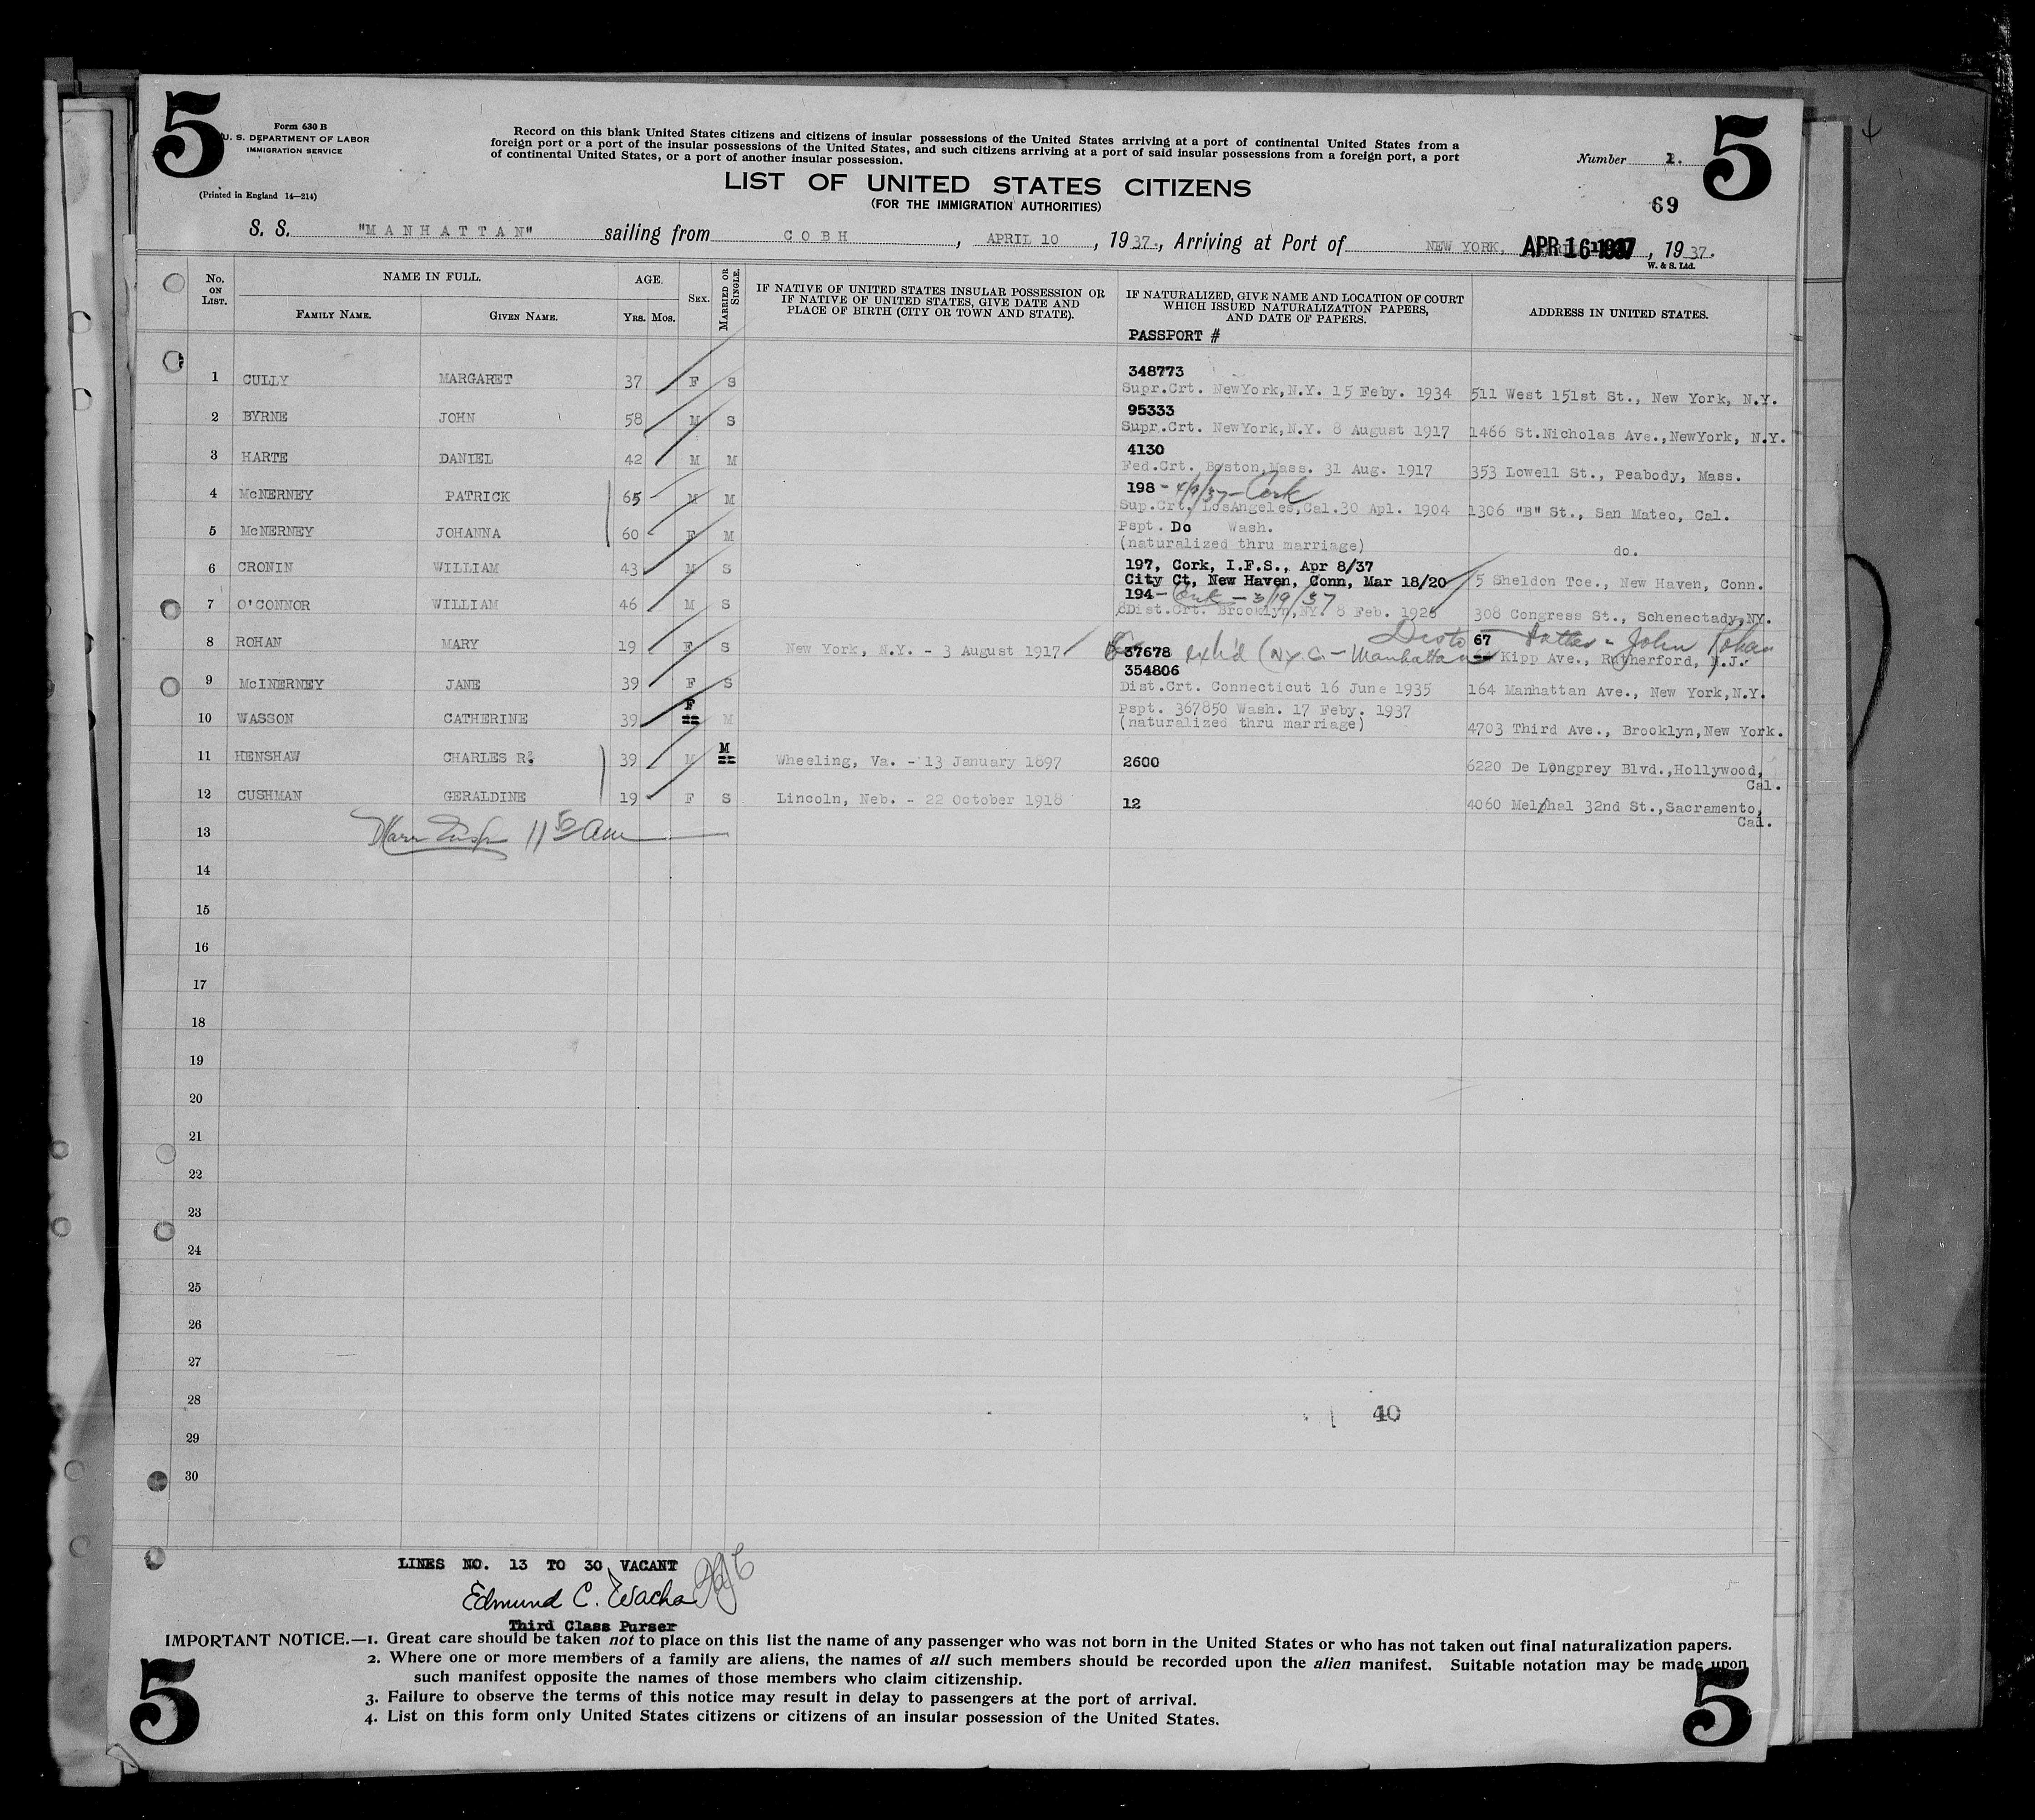 5
5
Form 630 B
U. S. DEPARTMENT OF LABOR
IMMIGRATION SERVICE
(Printed in England 14—214)
Record on this blank United States citizens and citizens of insular possessions of the United States arriving at a port of continental United States from a
foreign port or a port of the insular possessions of the United States, and such citizens arriving at a port of said insular possessions from a foreign port, a port
of continental United States, or a port of another insular possession.
Number 1.
LIST OF UNITED STATES CITIZENS
(FOR THE IMMIGRATION AUTHORITIES)
69
S. S. "MANHATTAN" sailing from COBH, APRIL 10, 1937., Arriving at Port of NEW YORK, APR 16 1937, 1937.
W. & S. Ltd.
No. ON LIST. NAME IN FULL. FAMILY NAME. GIVEN NAME. AGE. YRS. MOS. SEX. MARRIED OR SINGLE. IF NATIVE OF UNITED STATES INSULAR POSSESSION OR IF NATIVE OF UNITED STATES, GIVE DATE AND PLACE OF BIRTH (CITY OR TOWN AND STATE). IF NATURALIZED, GIVE NAME AND LOCATION OF COURT WHICH ISSUED NATURALIZATION PAPERS, AND DATE OF PAPERS. ADDRESS IN UNITED STATES.
PASSPORT #
348773
1 CULLY MARGARET 37 F S Supr.Crt. NewYork,N.Y. 15 Feby. 1934 511 West 151st St., New York, N.Y.
95333
2 BYRNE JOHN 58 M S Supr.Crt. NewYork,N.Y. 8 August 1917 1466 St.Nicholas Ave.,NewYork, N.Y.
4130
3 HARTE DANIEL 42 M M Fed.Crt. Boston,Mass. 31 Aug. 1917 353 Lowell St., Peabody, Mass.
198 - 4/9/37 - Cork
4 McNERNEY PATRICK 65 M M Sup.Crt. LosAngeles,Cal.30 Apl. 1904 1306 "B" St., San Mateo, Cal.
Pspt. Do Wash.
5 McNERNEY JOHANNA 60 F M (naturalized thru marriage) do.
197, Cork, I.F.S., Apr 8/37
6 CRONIN WILLIAM 43 M S City Ct, New Haven, Conn, Mar 18/20 5 Sheldon Tce., New Haven, Conn.
194 - Cork - 3/19/37
7 O'CONNOR WILLIAM 46 M S Dist.Crt. Brooklyn,NY. 8 Feb. 1926 308 Congress St., Schenectady,NY.
67 Father - John Rohan
8 ROHAN MARY 19 F S New York, N.Y. - 3 August 1917 37678 exh'd (NYC - Manhattan Kipp Ave., Rutherford, N.J.
354806
9 McINERNEY JANE 39 F S Dist.Crt. Connecticut 16 June 1935 164 Manhattan Ave., New York,N.Y.
F Pspt. 367850 Wash. 17 Feby. 1937
10 WASSON CATHERINE 39 M (naturalized thru marriage) 4703 Third Ave., Brooklyn,New York.
M
11 HENSHAW CHARLES R. 39 M Wheeling, Va. - 13 January 1897 2600 6220 De Longprey Blvd.,Hollywood,
Cal.
12 CUSHMAN GERALDINE 19 F S Lincoln, Neb. - 22 October 1918 12 4060 Melphal 32nd St.,Sacramento,
Cal.
13 Insp 11 50 am
14
15
16
17
18
19
20
21
22
23
24
25
26
27
28 40
29
30
LINES NO. 13 TO 30 VACANT
Edmund C. Wacha
Third Class Purser
IMPORTANT NOTICE.—1. Great care should be taken not to place on this list the name of any passenger who was not born in the United States or who has not taken out final naturalization papers.
2. Where one or more members of a family are aliens, the names of all such members should be recorded upon the alien manifest. Suitable notation may be made upon
such manifest opposite the names of those members who claim citizenship.
3. Failure to observe the terms of this notice may result in delay to passengers at the port of arrival.
4. List on this form only United States citizens or citizens of an insular possession of the United States.
5
5